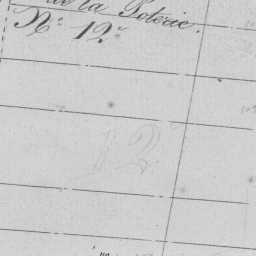 de la Poterie.
N.º 12.
12